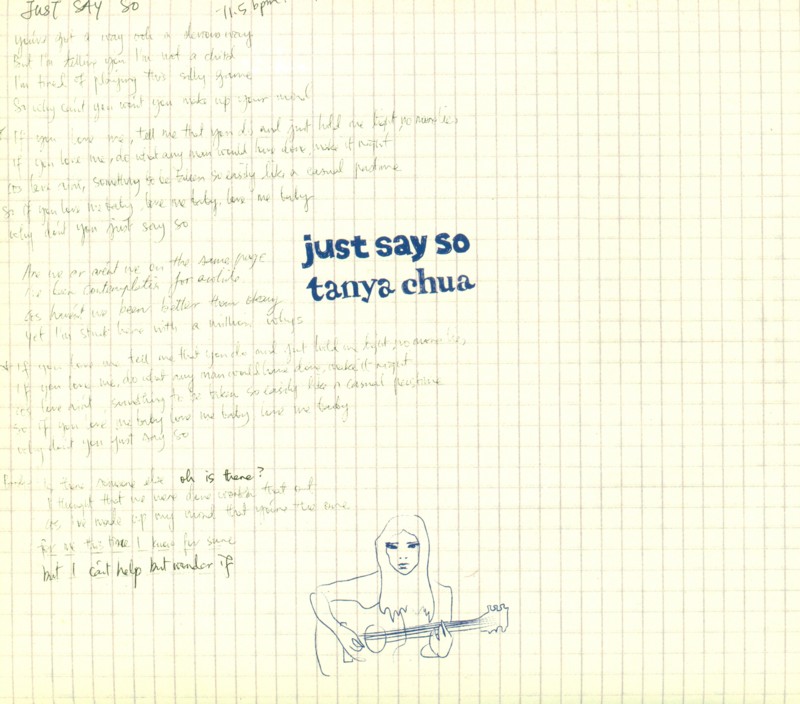 JUST SAY SO
-11.5 bpm
you've got a way ooh a devious way
But I'm telling you I'm not a child
I'm tired of playing this silly game
So why can't you won't you make up your mind
If you love me, tell me that you do and just hold me tight, no more lies
If you love me, do what any man would have done, make it right
cos love ain't, something to be taken so easily like a casual pastime
So if you love me baby, love me baby, love me baby
why don't you just say so
just say so
tanya chua
Are we or aren't we on the same page
I've been contemplating for awhile
cos haven't we been better than okay
Yet I'm stuck here with a million whys
If you love me tell me that you do and just hold me tight, no more lies,
If you love me, do what any man would have done, make it right
cos love ain't, something to be taken so easily like a casual pastime
so if you love me baby love me baby love me baby
why don't you just say so
Is there someone else oh is there?
I thought that we were done workin' that out
cos I've made up my mind that you're the one
this time I know for sure
but I can't help but wonder if